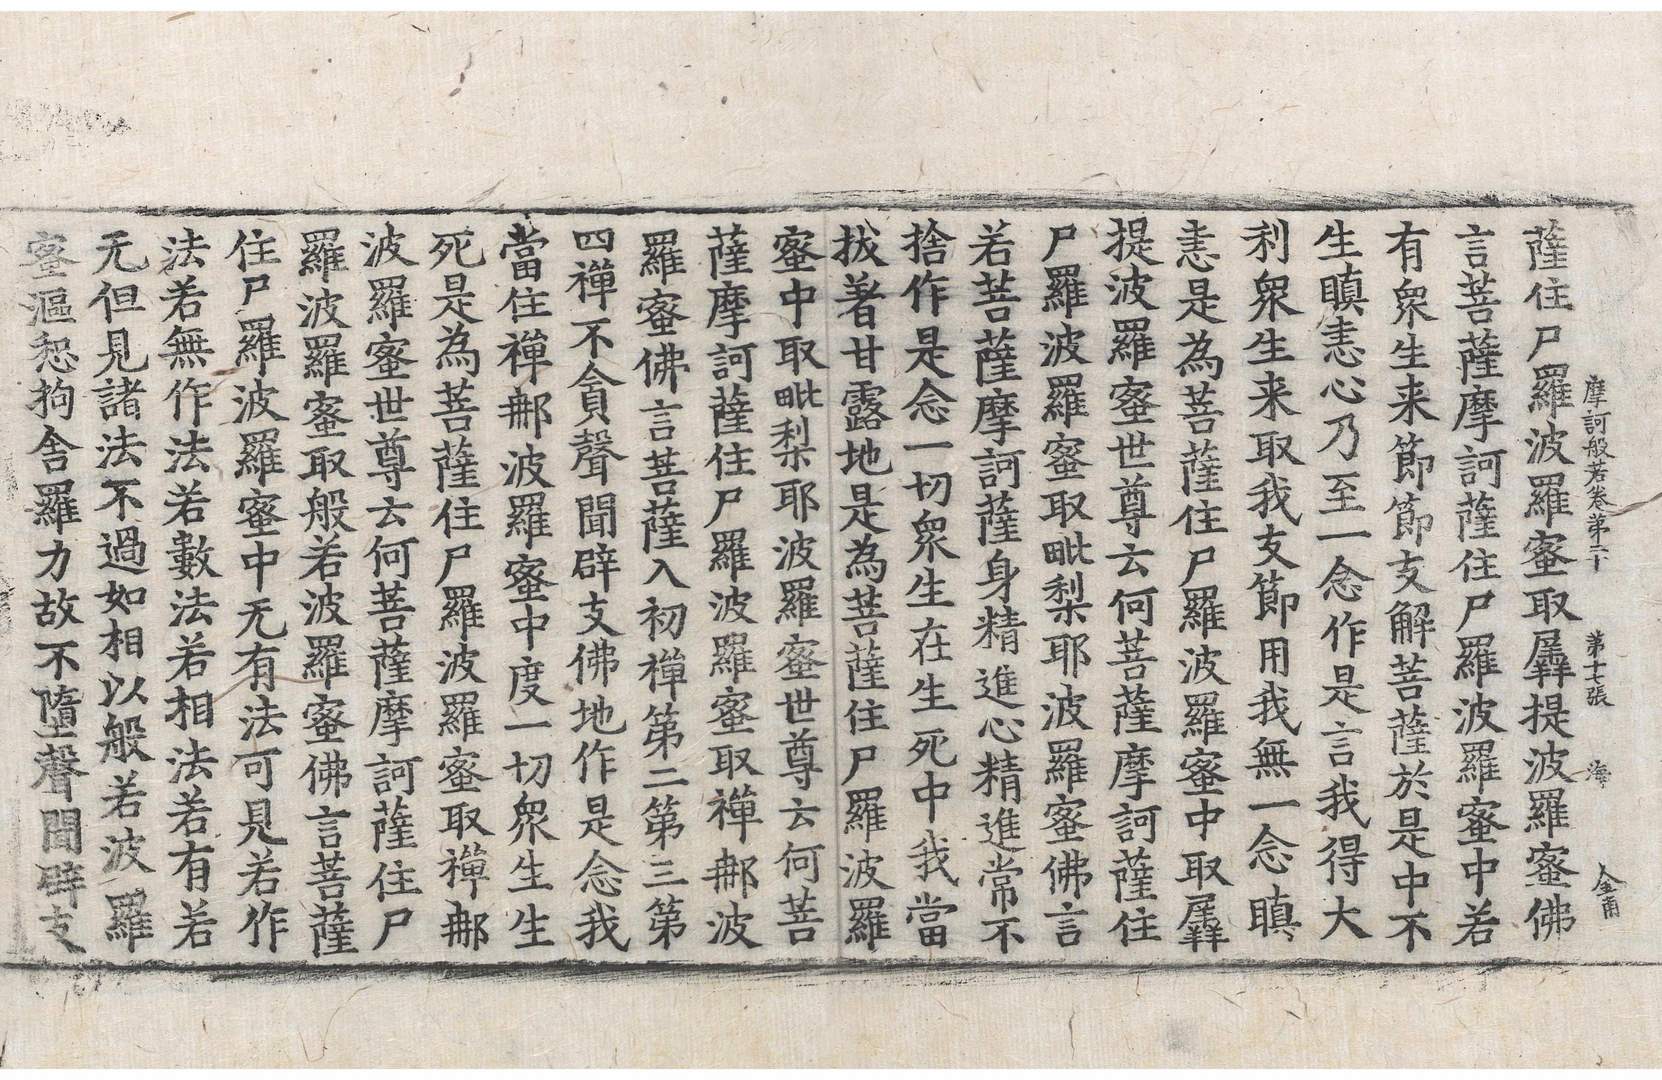 摩訶般若卷第二十　第十七張　海　金甫
薩住尸羅波羅蜜取羼提波羅蜜佛
言菩薩摩訶薩住尸羅波羅蜜中若
有衆生来節節支解菩薩於是中不
生瞋恚心乃至一念作是言我得大
利衆生来取我支節用我無一念瞋
恚是為菩薩住尸羅波羅蜜中取羼
提波羅蜜世尊云何菩薩摩訶薩住
尸羅波羅蜜取毗梨耶波羅蜜佛言
若菩薩摩訶薩身精進心精進常不
捨作是念一切衆生在生死中我當
拔著甘露地是為菩薩住尸羅波羅
蜜中取毗梨耶波羅蜜世尊云何菩
薩摩訶薩住尸羅波羅蜜取禪那波
羅蜜佛言菩薩入初禪第二第三第
四禪不貪聲聞辟支佛地作是念我
當住禪那波羅蜜中度一切衆生生
死是為菩薩住尸羅波羅蜜取禪那
波羅蜜世尊云何菩薩摩訶薩住尸
羅波羅蜜取般若波羅蜜佛言菩薩
住尸羅波羅蜜中无有法可見若作
法若無作法若數法若相法若有若
无但見諸法不過如相以般若波羅
蜜漚惒拘舍羅力故不墮聲聞辟支